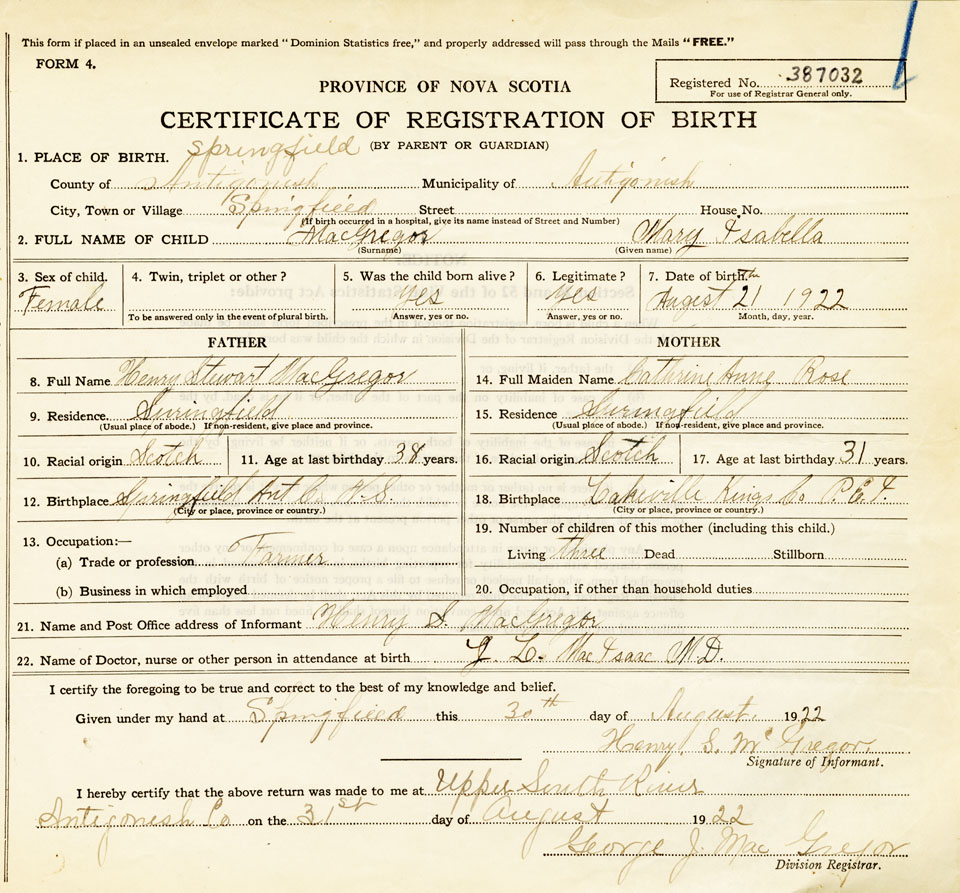 This form if placed in an unsealed envelope marked "Dominion Statistics free," and properly addressed will pass through the Mails "FREE."
FORM 4.
Registered No. 387032
For use of Registrar General only.
PROVINCE OF NOVA SCOTIA
CERTIFICATE OF REGISTRATION OF BIRTH
(BY PARENT OR GUARDIAN)
1. PLACE OF BIRTH. Springfield
County of Antigonish Municipality of Antigonish
City, Town or Village Springfield Street House No.
(If birth occurred in a hospital, give its name instead of Street and Number)
2. FULL NAME OF CHILD MacGregor Mary Isabella
(Surname) (Given name)
3. Sex of child. 4. Twin, triplet or other? 5. Was the child born alive? 6. Legitimate? 7. Date of birth.
Female Yes Yes August 21th 1922
To be answered only in the event of plural birth. Answer, yes or no. Answer, yes or no. Month, day, year.
FATHER
8. Full Name Henry Stewart MacGregor
9. Residence. Springfield
(Usual place of abode.) If non-resident, give place and province.
10. Racial origin Scotch 11. Age at last birthday 38 years.
12. Birthplace Springfield Ant Co. N.S.
(City or place, province or country.)
13. Occupation:—
(a) Trade or profession Farmer
(b) Business in which employed
MOTHER
14. Full Maiden Name Cathrine Anne Rose
15. Residence Springfield
(Usual place of abode.) If non-resident, give place and province.
16. Racial origin Scotch 17. Age at last birthday 31 years.
18. Birthplace Lakeville Kings Co P.E.I.
(City or place, province or country.)
19. Number of children of this mother (including this child.)
Living three Dead Stillborn
20. Occupation, if other than household duties
21. Name and Post Office address of Informant Henry S. MacGregor
22. Name of Doctor, nurse or other person in attendance at birth J. L. MacIsaac M.D.
I certify the foregoing to be true and correct to the best of my knowledge and belief.
Given under my hand at Springfield this 30th day of August 1922
Henry S. McGregor.
Signature of Informant.
I hereby certify that the above return was made to me at Upper South River
Antigonish Co on the 31st day of August 1922
George J. MacGregor
Division Registrar.